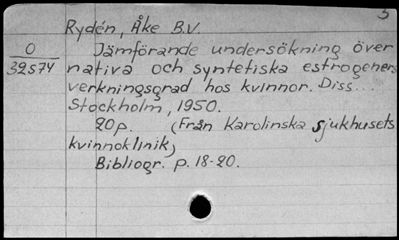 5
Rydén, Åke B.V.
O Jämförande undersökning över
39574 nativa och syntetiska estrogeners
verkningsgrad hos kvinnor. Diss...
Stockholm, 1950.
20p. (Från Karolinska sjukhusets
kvinnoklinik)
Bibliogr. p. 18-20.